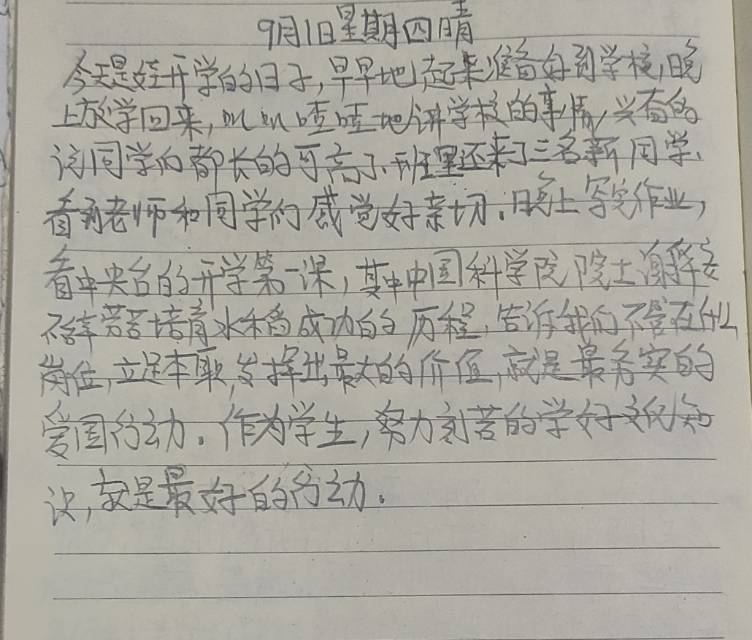 9月1日星期四晴
今天是娃开学的日子,早早地起来准备好到学校,晚
上放学回来,叽叽喳喳地讲学校的事情,兴奋的
说同学们都长的可高了.班里还来了三名新同学.
看到老师和同学们感觉好亲切.晚上写完作业,
看中央台的开学第一课,其中中国科学院院士谢华安
不辞辛苦培育水稻成功的历程,告诉我们不管在什么
岗位,立足本职,发挥出最大的价值,就是最务实的
爱国行动。作为学生,努力刻苦的学好文化知
识,就是最好的行动.